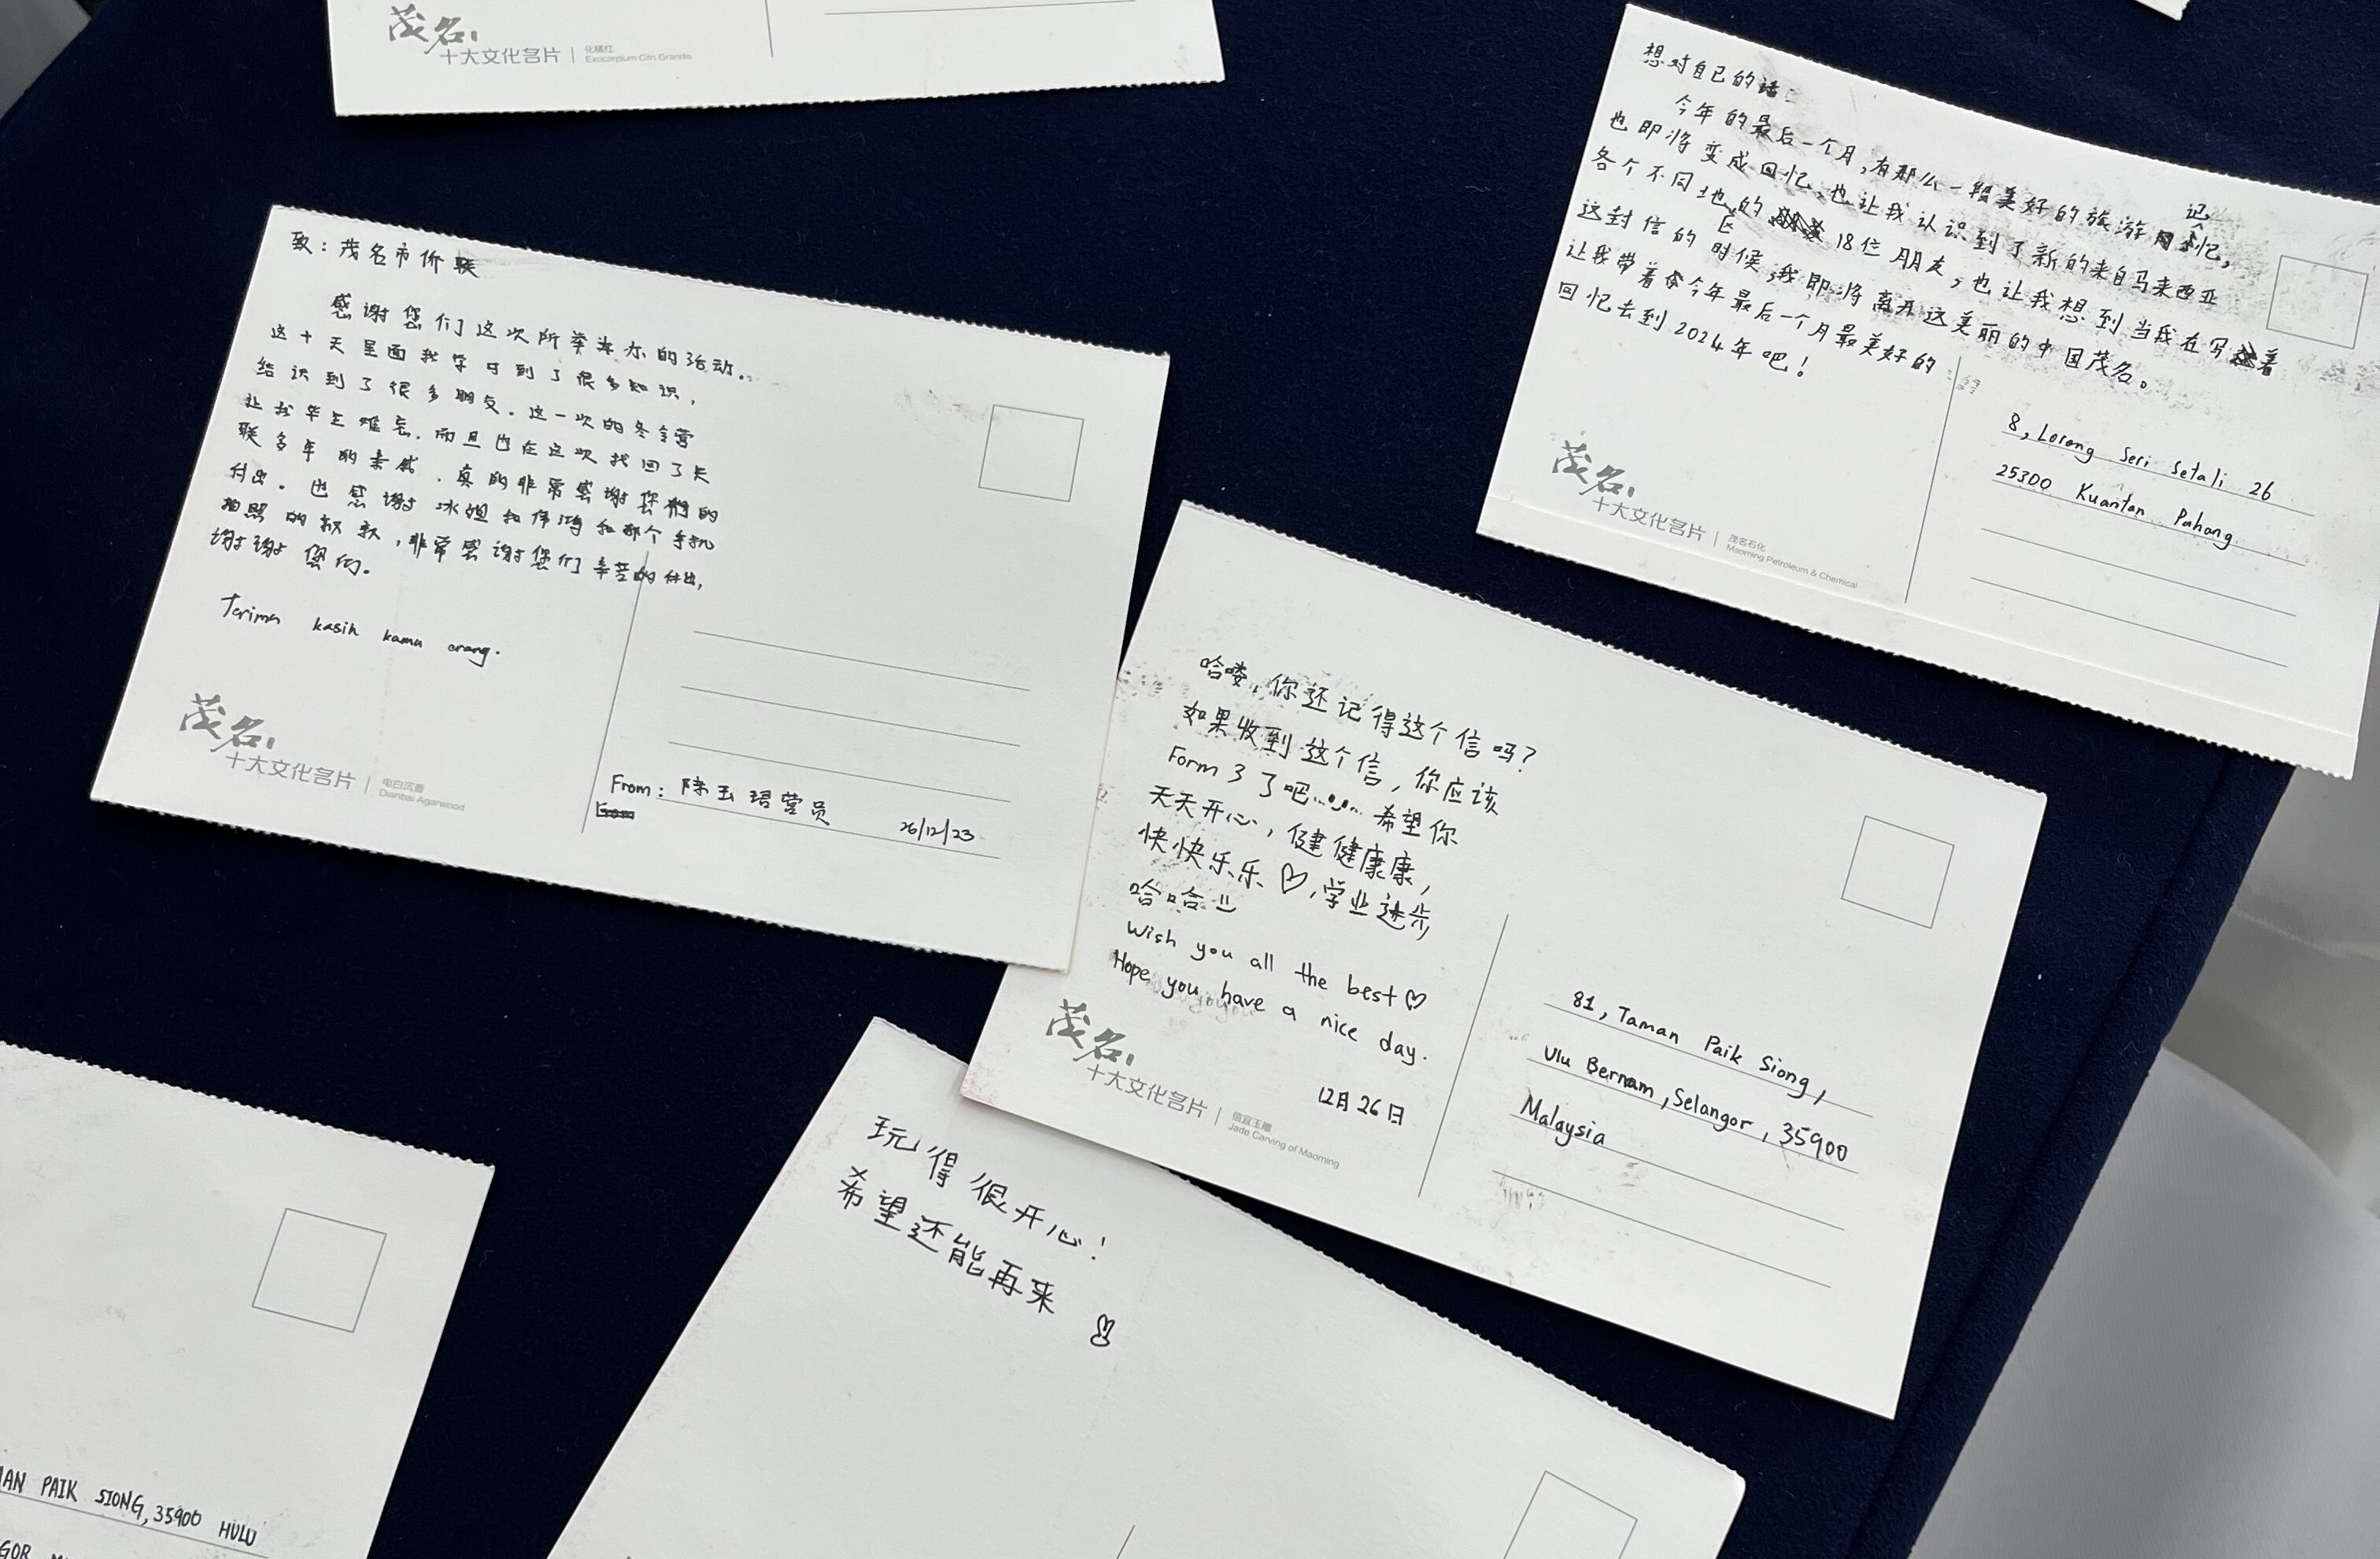 茂名
十大文化名片 | 化橘红
Exocarpium Citri Grandis
想对自己的话：
今年的最后一个月，有那么一段美好的旅游记忆，
也即将变成回忆，也让我认识到了新的来自马来西亚
各个不同地区的18位朋友，也让我想到当我在写着
这封信的时候，我即将离开这美丽的中国茂名。
让我带着今年最后一个月最美好的
回忆去到2024年吧！
8, Lorong Seri Setali 26
25300 Kuantan Pahang
茂名
十大文化名片 | 茂名石化
Maoming Petroleum & Chemical
致：茂名市侨联
感谢您们这次所举办的活动。
这十天里面我学习到了很多知识，
结识到了很多朋友。这一次的冬令营
让我毕生难忘。而且也在这次找回了失
联多年的亲戚。真的非常感谢您们的
付出。也感谢冰姐和伟鸿和那个手机
拍照的叔叔，非常感谢您们辛苦的付出，
谢谢您们。
Terima kasih kamu orang.
茂名
十大文化名片 | 电白沉香
Dianbai Agarwood
From: 陈玉珺营员 26/12/23
哈喽，你还记得这个信吗？
如果收到这个信，你应该
Form 3 了吧...... 希望你
天天开心，健健康康，
快快乐乐♡，学业进步，
哈哈
Wish you all the best♡
Hope you have a nice day.
12月26日
茂名
十大文化名片 | 信宜玉雕
Jade Carving of Maoming
81, Taman Paik Siong,
Ulu Bernam, Selangor, 35900
Malaysia
玩得很开心！
希望还能再来
PAIK SIONG, 35900 HULU